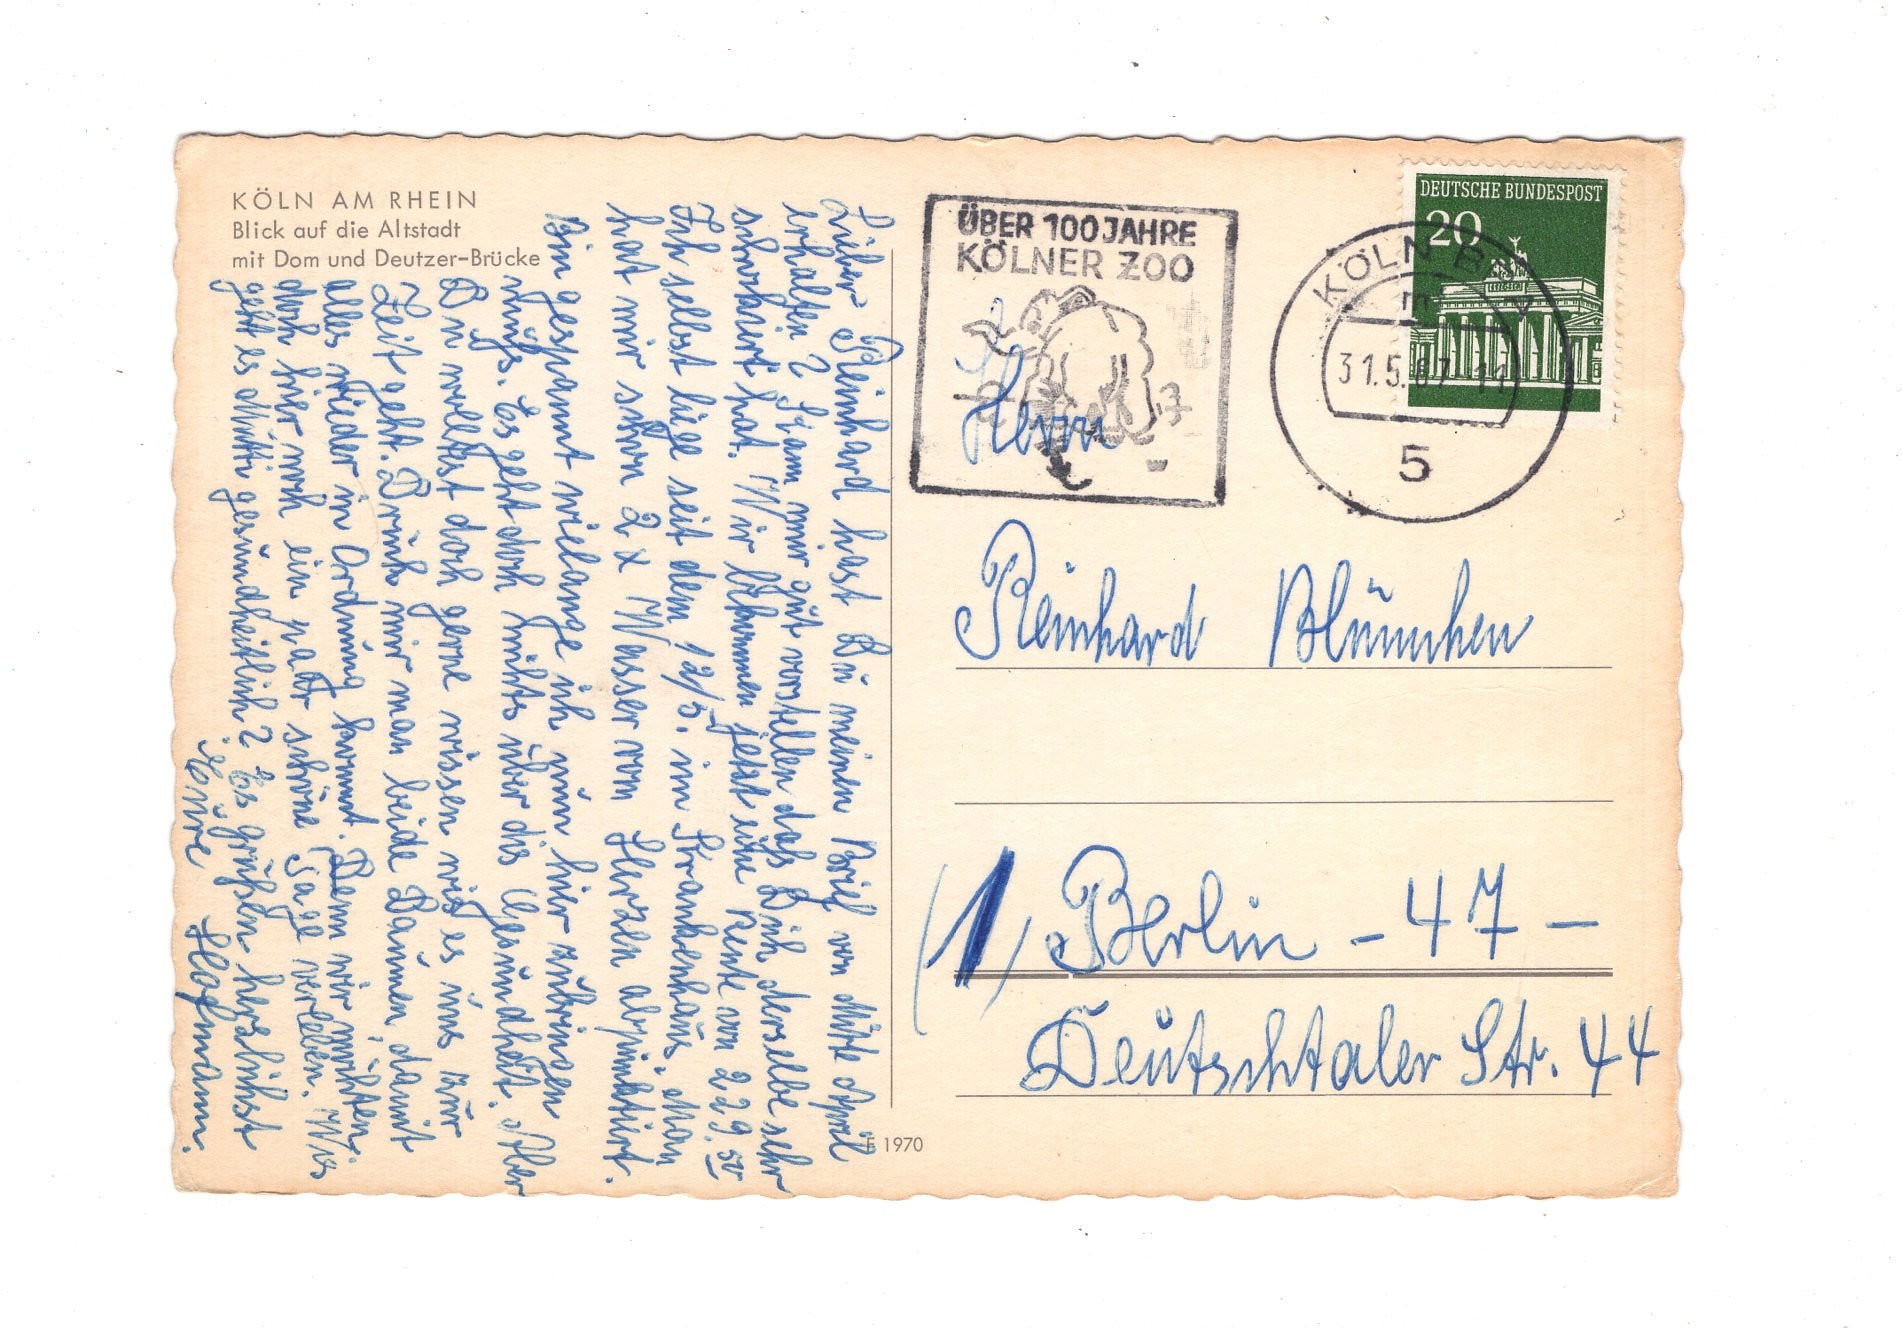 KÖLN AM RHEIN
Blick auf die Altstadt
mit Dom und Deutzer-Brücke
Lieber Reinhard hast Du meinen Brief von Mitte April
erhalten? Kann mir gut vorstellen daß Dich derselbe sehr
schockiert hat. Wir bekommen jetzt eine Rente von 229.50
Ich selbst liege seit dem 12/5. im Krankenhaus. Man
hat mir schon 2 x Wasser vom Herzen abpunktiert.
Bin gespannt wielange ich nun hier zubringen
muß. Es geht doch nichts über die Gesundheit. Aber
Du willst doch gerne wissen wie es uns zur
Zeit geht. Drück mir man beide Daumen, damit
alles wieder in Ordnung kommt. Denn wir möchten
doch hier noch ein paar schöne Tage verleben. Wie
geht es Mutti gesundheitlich? Es grüßen herzlichst
Eure Hofmann.
ÜBER 100 JAHRE
KÖLNER ZOO
DEUTSCHE BUNDESPOST
20
KÖLN
31.5.67-11
5
Herrn
Reinhard Blümchen
(1) Berlin - 47 -
Deutschtaler Str. 44
E 1970